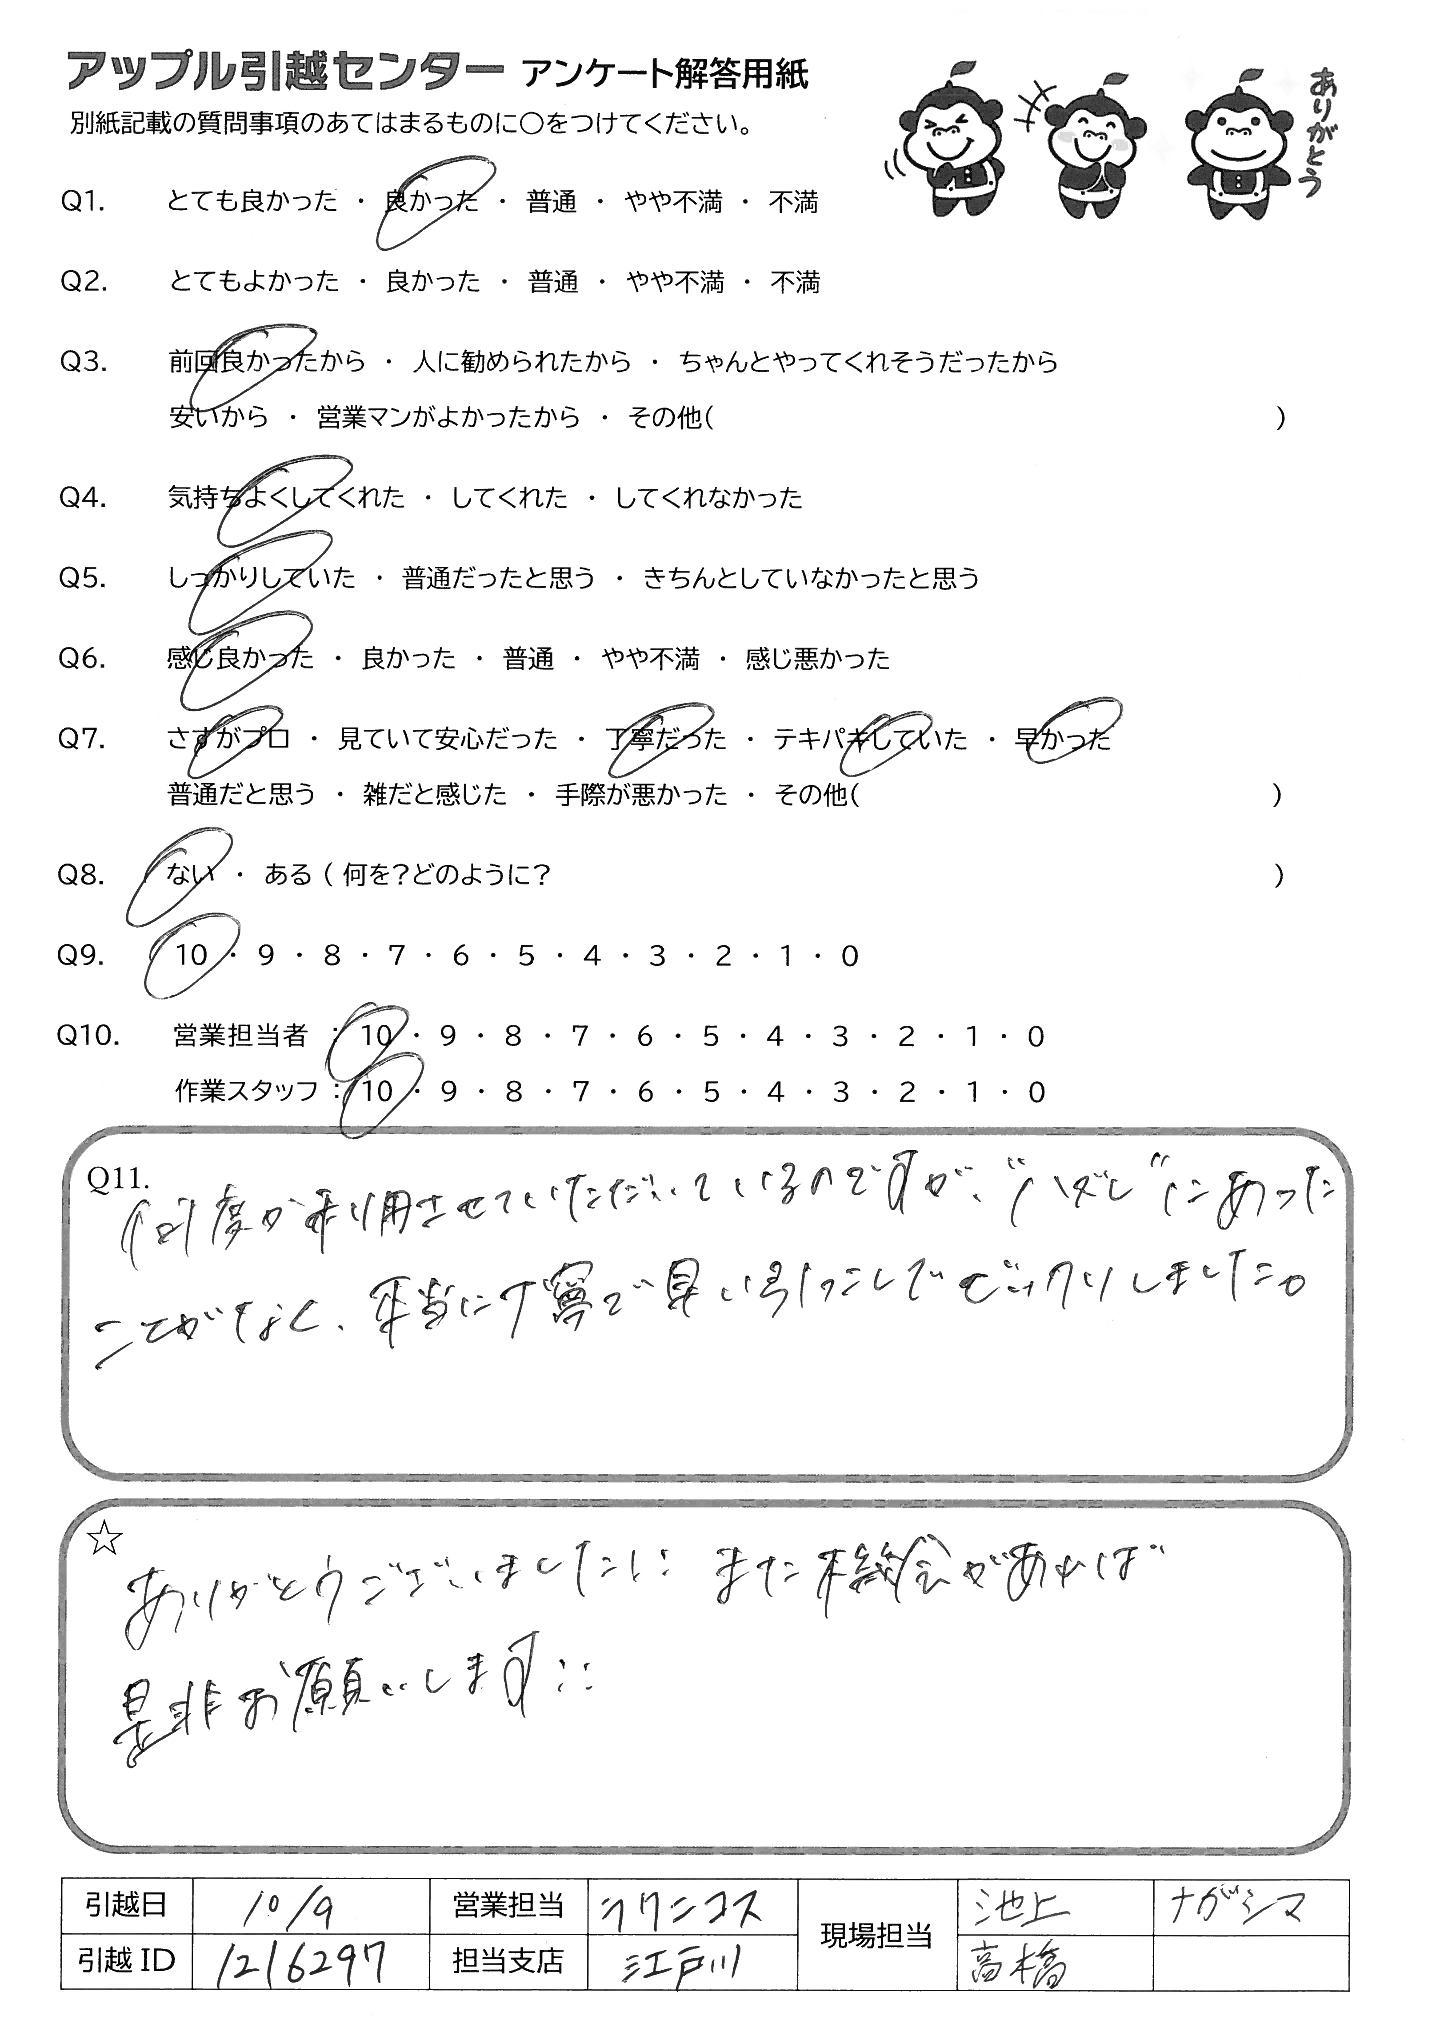 アップル引越センター アンケート解答用紙
別紙記載の質問事項のあてはまるものに○をつけてください。
ありがとう
Q1. とても良かった ・ 良かった ・ 普通 ・ やや不満 ・ 不満
Q2. とてもよかった ・ 良かった ・ 普通 ・ やや不満 ・ 不満
Q3. 前回良かったから ・ 人に勧められたから ・ ちゃんとやってくれそうだったから
安いから ・ 営業マンがよかったから ・ その他( )
Q4. 気持ちよくしてくれた ・ してくれた ・ してくれなかった
Q5. しっかりしていた ・ 普通だったと思う ・ きちんとしていなかったと思う
Q6. 感じ良かった ・ 良かった ・ 普通 ・ やや不満 ・ 感じ悪かった
Q7. さすがプロ ・ 見ていて安心だった ・ 丁寧だった ・ テキパキしていた ・ 早かった
普通だと思う ・ 雑だと感じた ・ 手際が悪かった ・ その他( )
Q8. ない ・ ある ( 何を?どのように? )
Q9. 10 ・ 9 ・ 8 ・ 7 ・ 6 ・ 5 ・ 4 ・ 3 ・ 2 ・ 1 ・ 0
Q10. 営業担当者 : 10 ・ 9 ・ 8 ・ 7 ・ 6 ・ 5 ・ 4 ・ 3 ・ 2 ・ 1 ・ 0
作業スタッフ : 10 ・ 9 ・ 8 ・ 7 ・ 6 ・ 5 ・ 4 ・ 3 ・ 2 ・ 1 ・ 0
Q11.
何度か利用させていただいているのですが、"ハズレ"にあった
ことがなく、本当に丁寧で早い引っこしでビックリしました。
☆
ありがとうございました!! また機会があれば
是非お願いします!!
引越日 10/9 営業担当 ラワンコス 現場担当 池上 ナガシマ
引越ID 1216297 担当支店 江戸川 高橋